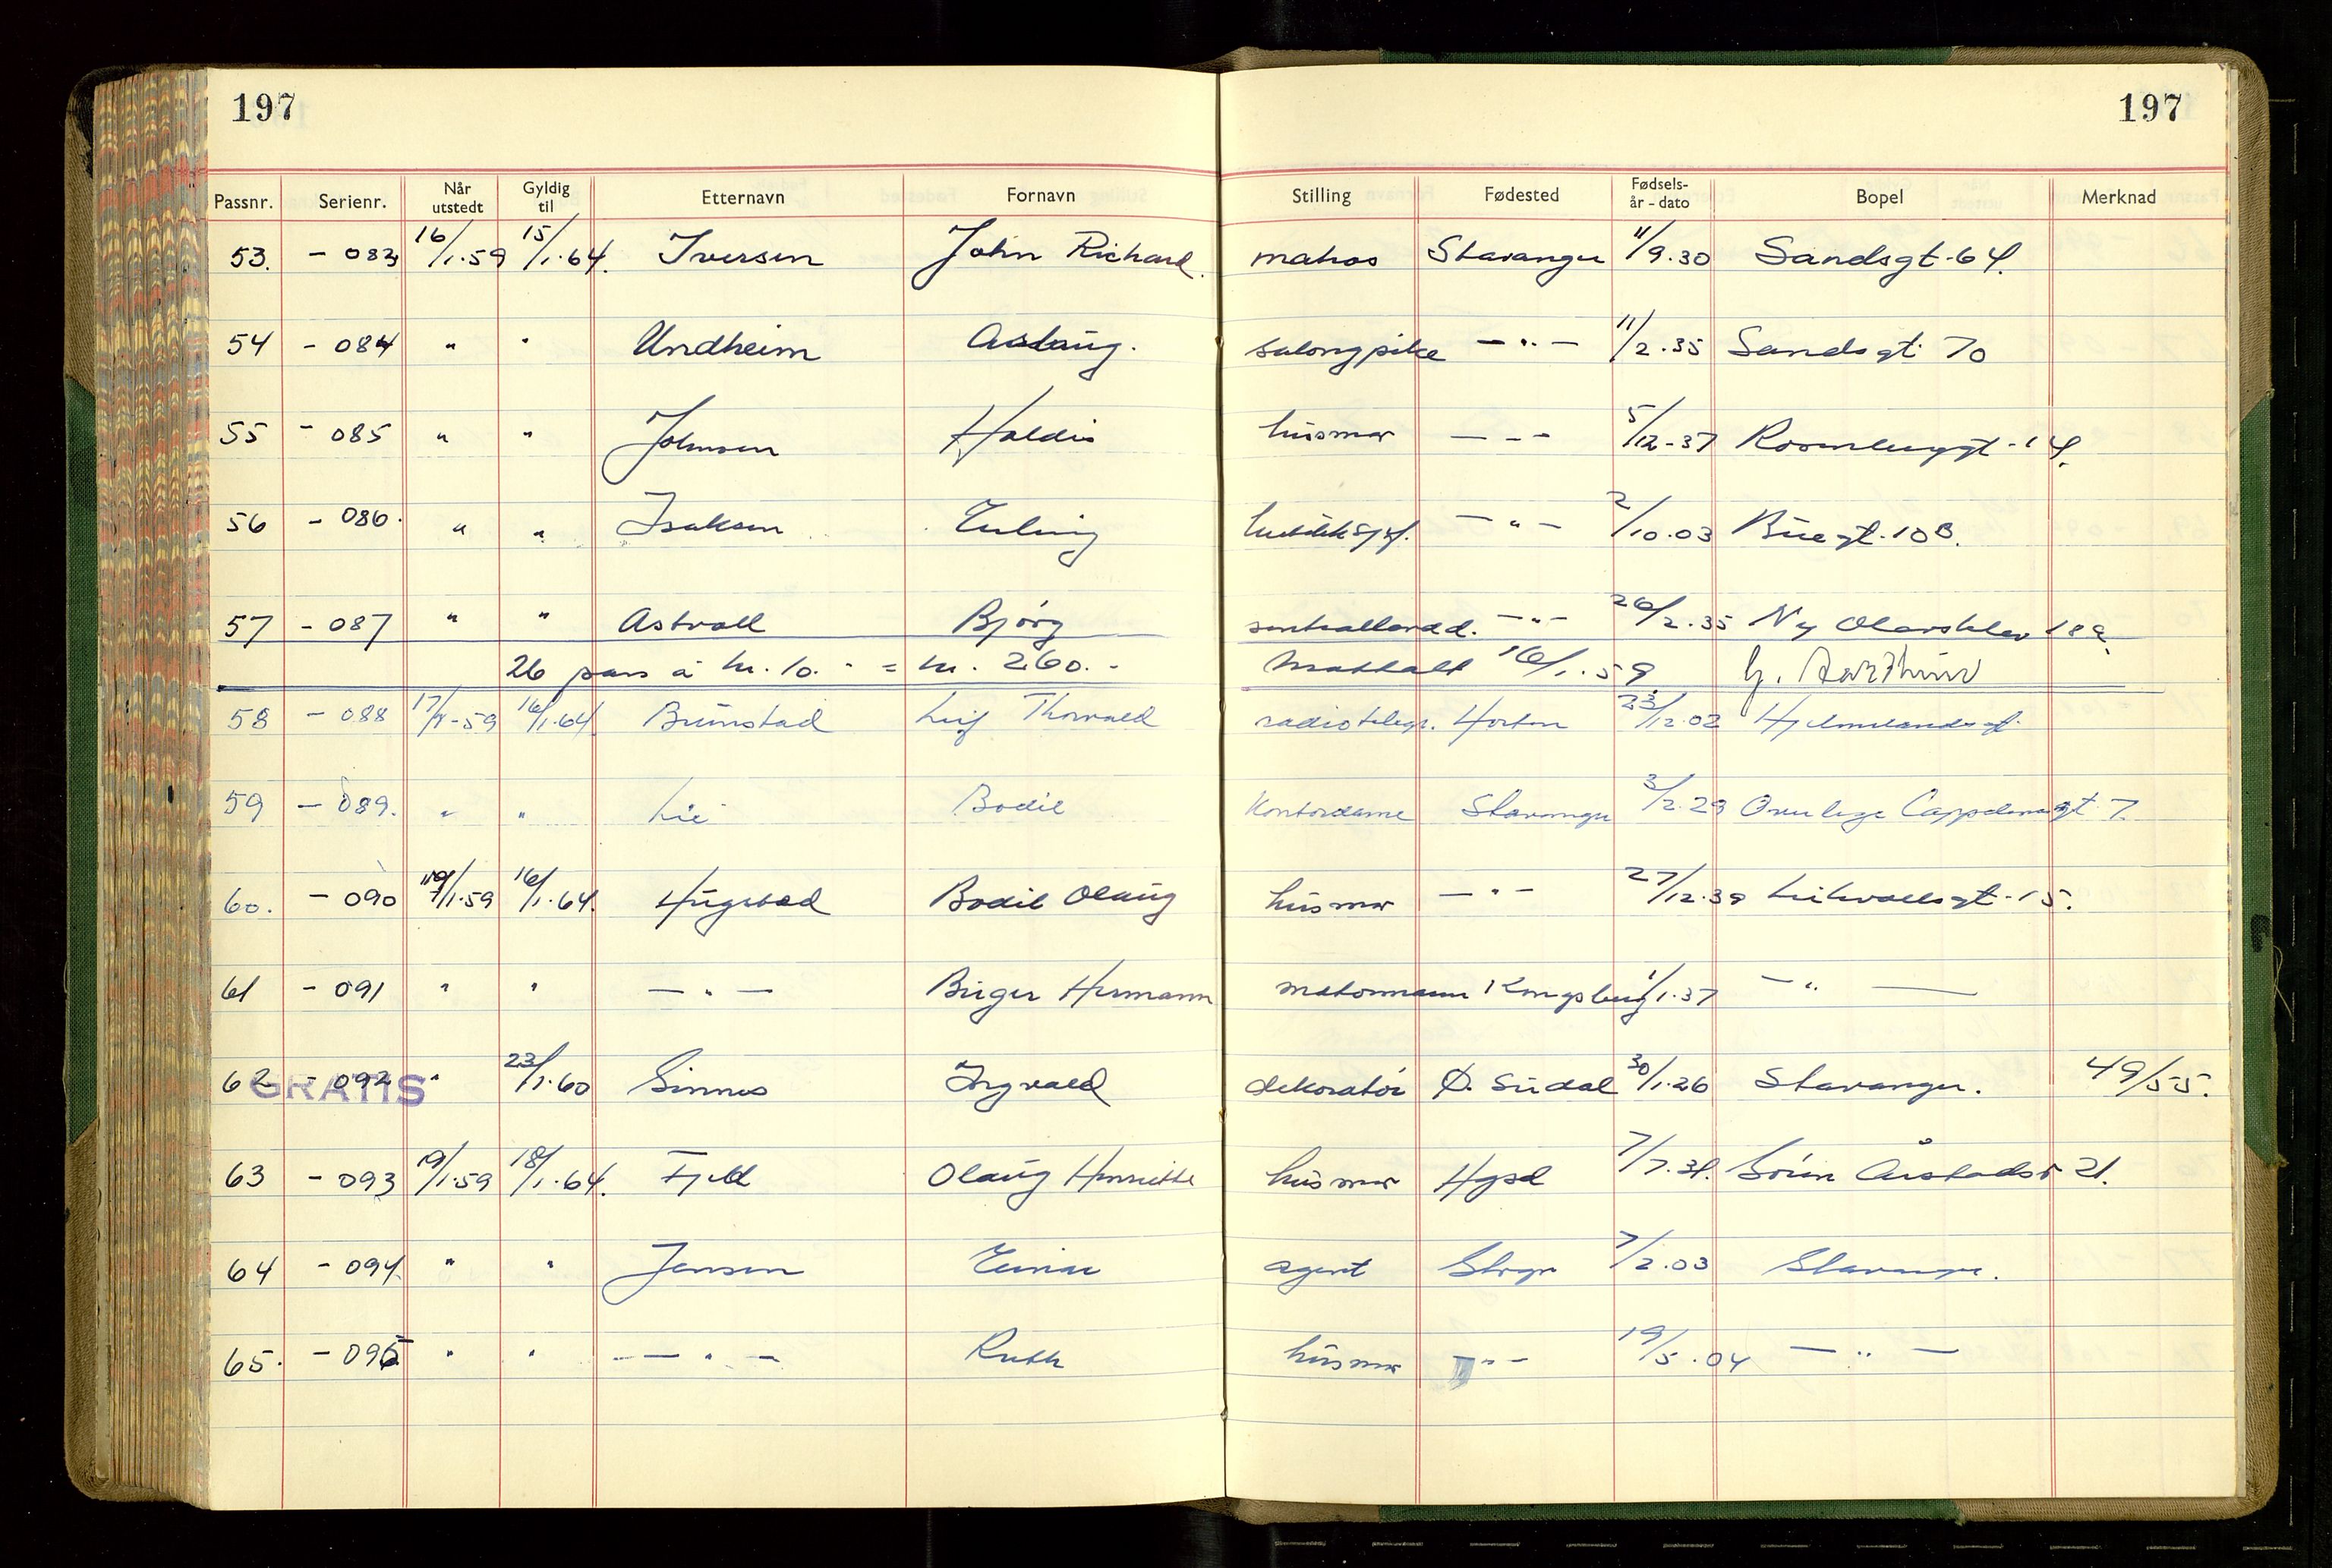 197 197
Passnr. Serienr. Når utstedt Gyldig til Etternavn Fornavn Stilling Fødested Fødsels-år - dato Bopel Merknad
53. - 083 16/1.59 15/1.64. Iversen John Richard. matros Stavanger 11/9.30 Sandsgt. 64.
54 - 084 " " Undheim Aslaug. salongpike -"- 11/2.35 Sandsgt. 70
55 - 085 " " Johnsen Haldis husmor --- 5/12-37 Rosenberggt. 14.
56 - 086. " " Isaksen Erling -"- 2/10.03 Buegt. 10B.
57 - 087 " " Astvall Bjørg -"- 26/2.35 Ny Olavskleiv 18a
26 pass à kr. 10.- = kr. 260.- Mottatt 16/1.59
58 - 088 17/1-59 16/1.64. Brunstad Leif Thorvald radiotelegr. Horten 23/12.02 Hjelmelandsgt.
59 - 089. " " Lie Bodil Kontordame Stavanger 3/2.29 Overlege Cappelensgt 7.
60. - 090 /1.59 16/1.64. Hugstad Bodil Olaug husmor -"- 27/12.39 Leikvollsgt. 15.
61 - 091 " " -"- Birger Hermann motormann Kongsberg 1/1.37 -"-
62 - 092 " 23/1.60 Sinnes Ingvald dekoratør Ø. Sirdal 30/1.26 Stavanger. 49/55.
GRATIS
63 - 093 19/1.59 18/1.64. Fjeld Olaug Henriette husmor Hgsd 7/7.31. Søren Årstadsv 21.
64 - 094. " " Jensen Einar agent Stvgr 7/2.03 Stavanger.
65. - 095 " " -"- Ruth husmor -"- 19/5.04 -"-